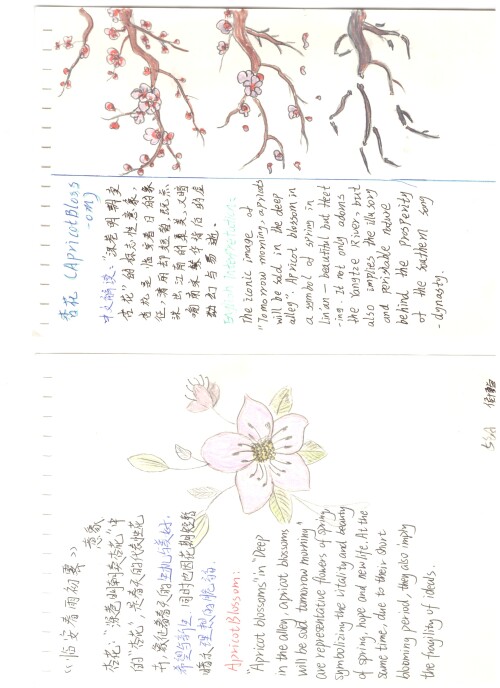 《临安春雨初霁》
意象
杏花："深巷明朝卖杏花"中
的"杏花",是春天的代表性花
卉,象征着春天的生机与美好.
希望与新生,同时也因花期短暂
暗示理想的脆弱.
Apricot Blossom:
"Apricot blossoms" in "Deep
in the alley, apricot blossoms
will be sold tomorrow morning"
are representative flowers of spring,
symbolizing the vitality and beauty
of spring, hope and new life. At the
same time, due to their short
blooming period, they also imply
the fragility of ideals.
杏花 (Apricot Bloss
-om)
中文解读："深巷明朝卖
杏花"的标志性意象.
杏花是临安春日的象
征,清丽却短暂,既点
染出江南的柔美,又暗
喻南宋繁华背后的虚
幻与易逝.
English Interpretation:
the iconic image of
"Tomorrow morning, apricots
will be sold in the deep
alley". Apricot blossom in
a symbol of spring in
Lin'an — beautiful but fleet
-ing. It not only adorns
the Yangtze River, but
also implies the illusory
and perishable nature
behind the prosperity
of the Southern song
-dynasty.